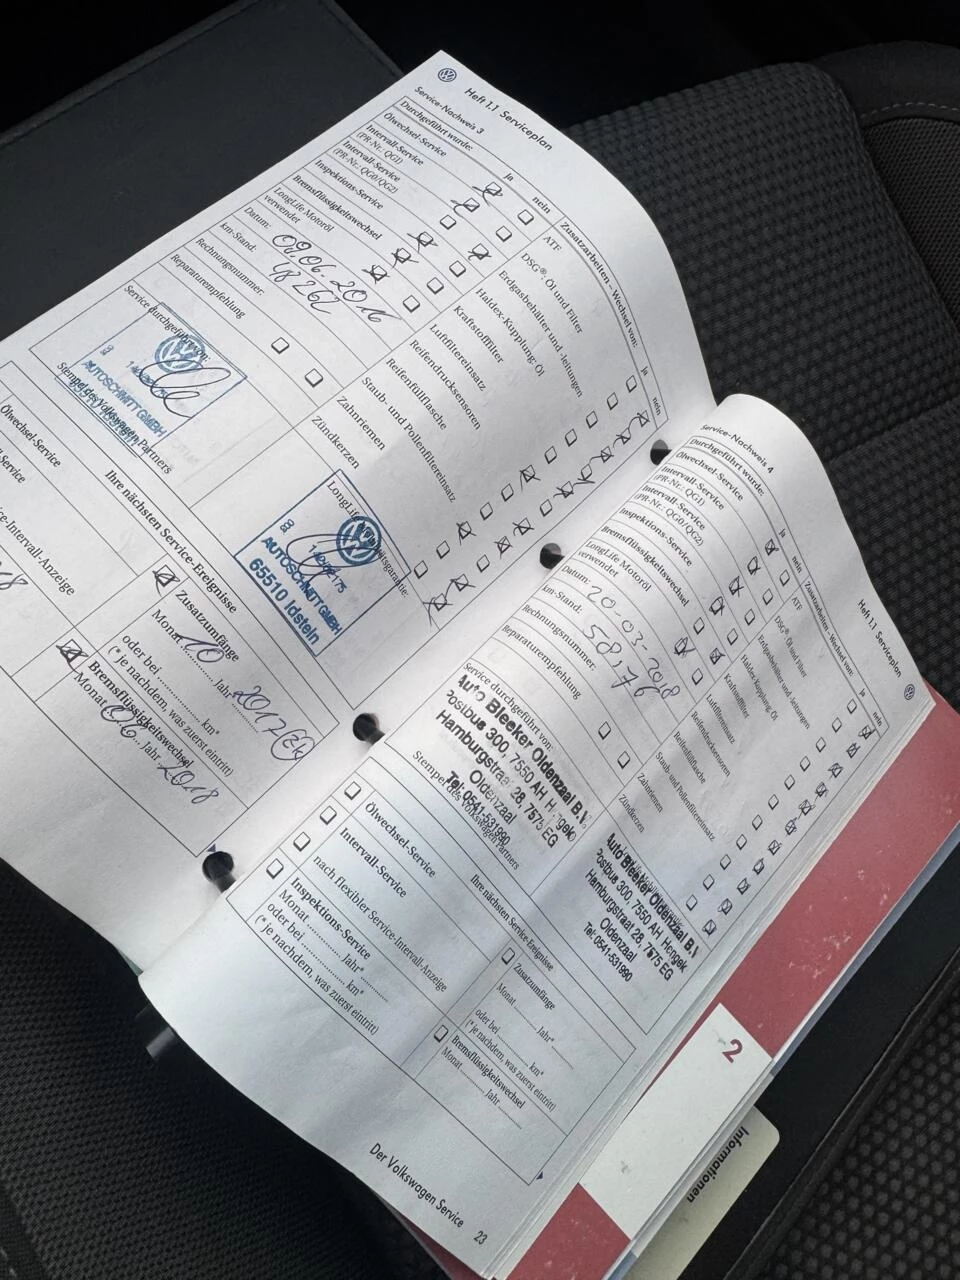 Heft 1.1 Serviceplan
Service-Nachweis 3
Durchgeführt wurde:
ja
nein
Ölwechsel-Service
Intervall-Service
(PR-Nr.: QG1)
Intervall-Service
(PR-Nr.: QG0/QG2)
Inspektions-Service
Bremsflüssigkeitswechsel
LongLife Motoröl
verwendet
Datum: 02.06.2016
km-Stand: 48 262
Rechnungsnummer:
Reparaturempfehlung
Zusatzarbeiten – Wechsel von:
ja
nein
ATF
DSG®, Öl und Filter
Erdgasbehälter und -leitungen
Haldex-Kupplung: Öl
Kraftstofffilter
Luftfiltereinsatz
Reifendrucksensoren
Reifenfüllflasche
Staub- und Pollenfiltereinsatz
Zahnriemen
Zündkerzen
Service durchgeführt von:
AUTOSCHMITT GMBH
Stempel des Volkswagen Partners
AUTOSCHMITT GMBH
65510 Idstein
Ölwechsel-Service
Ihre nächsten Service-Ereignisse
Zusatzumfänge
Monat 10 Jahr 2017
oder bei ........... km*
(* je nachdem, was zuerst eintritt)
Bremsflüssigkeitswechsel
Monat 06 Jahr 2018
Heft 1.1 Serviceplan
Service-Nachweis 4
Durchgeführt wurde:
ja
nein
Ölwechsel-Service
Intervall-Service
(PR-Nr.: QG1)
Intervall-Service
(PR-Nr.: QG0/QG2)
Inspektions-Service
Bremsflüssigkeitswechsel
LongLife Motoröl
verwendet
Datum: 20-03-2018
km-Stand: 58176
Rechnungsnummer:
Reparaturempfehlung
Zusatzarbeiten – Wechsel von:
ja
nein
ATF
DSG®, Öl und Filter
Erdgasbehälter und -leitungen
Haldex-Kupplung: Öl
Kraftstofffilter
Luftfiltereinsatz
Reifendrucksensoren
Reifenfüllflasche
Staub- und Pollenfiltereinsatz
Zahnriemen
Zündkerzen
Service durchgeführt von:
Auto Bleeker Oldenzaal B.V.
Postbus 300, 7550 AH Hengelo
Hamburgstraat 28, 7575 EG
Oldenzaal
Tel: 0541-531990
Stempel des Volkswagen Partners
Auto Bleeker Oldenzaal B.V.
Postbus 300, 7550 AH Hengelo
Hamburgstraat 28, 7575 EG
Oldenzaal
Tel: 0541-531990
Ihre nächsten Service-Ereignisse
Ölwechsel-Service
Intervall-Service
nach flexibler Service-Intervall-Anzeige
Inspektions-Service
Monat ........... Jahr* ...........
oder bei ........... km*
(* je nachdem, was zuerst eintritt)
Zusatzumfänge
Monat ........... Jahr* ...........
oder bei ........... km*
(* je nachdem, was zuerst eintritt)
Bremsflüssigkeitswechsel
Monat ........... Jahr ...........
Der Volkswagen Service
23
2
Informationen